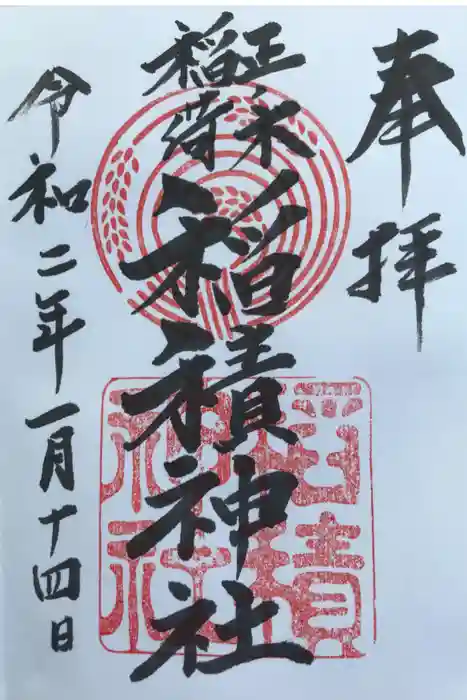 奉拝
正ノ木
稲荷
稲積神社
令和二年一月十四日
稲積
神社